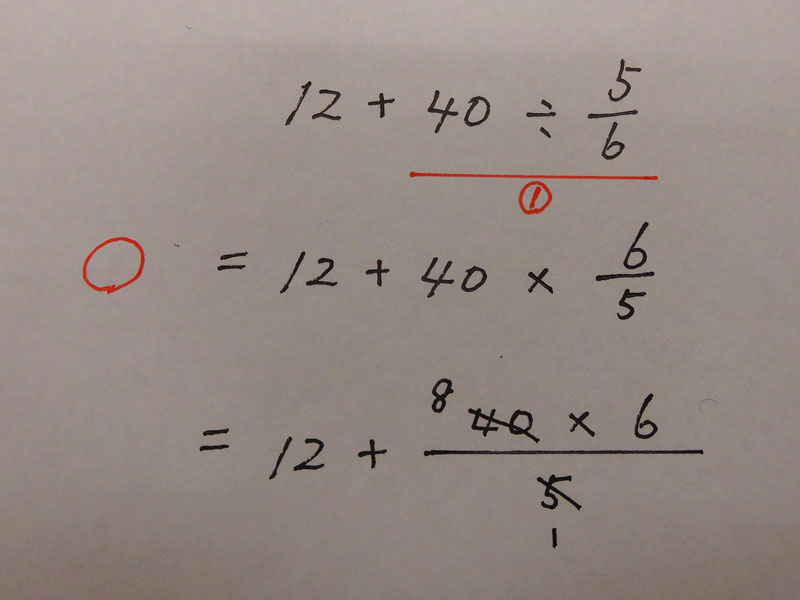 12 + 40 ÷ 5/6
①
= 12 + 40 × 6/5
= 12 + 8 40 × 6 / 5 1